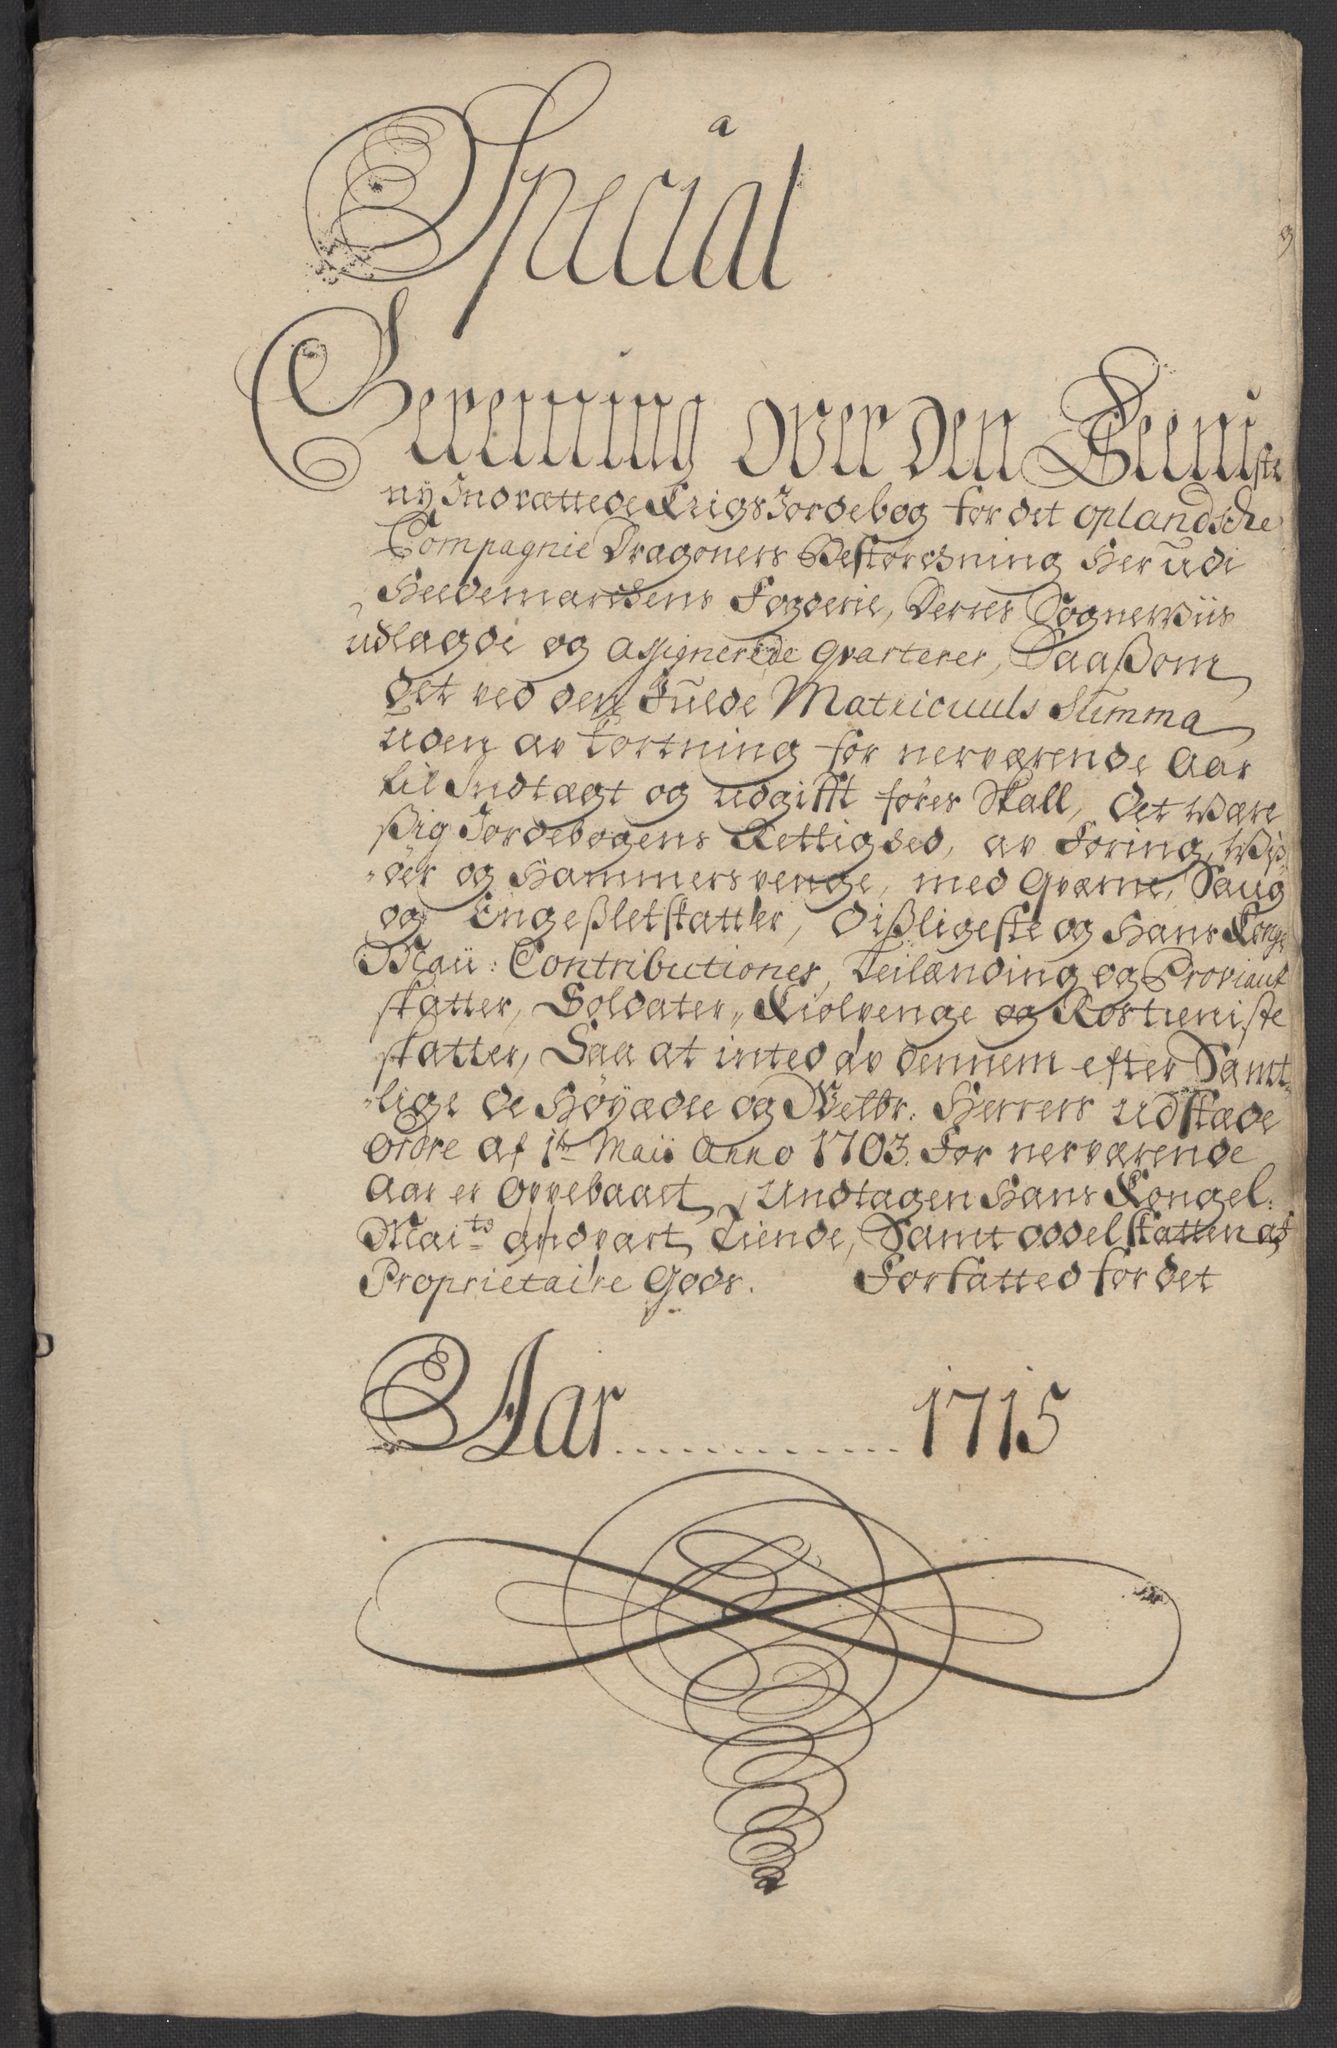 a
Special
Berening over den Seeniste
ny Indrættede Krigs Jordebog for det oplandsche
Compagnie Dragoners Bestoresning Her udi
Heedemarchens Fogderie, Derres Sogneviis
udlagde og Assignerede Qvarterer, Saaßom
det ved den Fulde Matricuuls Summa
uden av kortning for nerværende Aar
til Indtægt og udgifft føres Skall, det være
ßig Jordebogens Rettighed, av Foring,
og Hammersvenge, med Qværne, Saug
og Engeßletskatter, dißligeste og Hans Konge
Maii: Contributioner, Leilænding og Proviant
skatter, Soldater,, Kiolvenge og Rostieniste
skatter, Saa at inted av dennem efter Samt„
„lige de Høyædle og Velbr: Herrers udstæde
Ordre af 1te Maii Anno 1703. For nerværende
Aar er Oppebaaet, undtagen Hans Kongel:
Maits andpart Tiende, Samt Oddelskatten af
Proprietaire Gods. Forfatted for det
Aar............ 1715